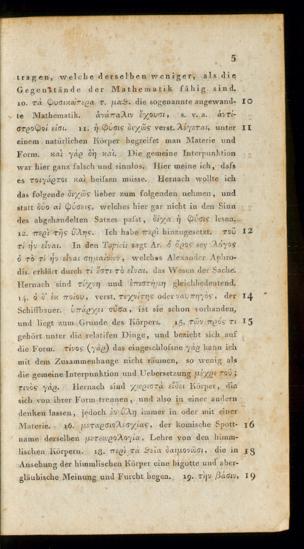 5
tragen, welche derselben weniger, als die
Gegenstände der Mathematik fähig sind.
10. τὰ φυσικώτερα τ. μαθ. die sogenannte angewand- 10
te Mathematik. ἀνάπαλιν ἔχουσι, s. v. a. ἀντί-
στροφοί εἰσι. 11. ἡ φύσις διχῶς verst. λέγεται, unter 11
einem natürlichen Körper begreifet man Materie und
Form. καὶ γὰρ δὴ καὶ. Die gemeine Interpunktion
war hier ganz falsch und sinnlos. Hier meine ich, dass
es τοιγάρτοι καὶ heifsen müsse. Hernach wollte ich
das folgende διχῶς lieber zum folgenden nehmen, und
statt δύο αἱ φύσεις, welches hier gar nicht in den Sinn
des abgehandelten Satzes pafst, δίχα ἡ φύσις lesen.
12. περὶ τῆς ὕλης. Ich habe περὶ hinzugesetzt. τοῦ 12
τί ἦν εἶναι. In den Topicis sagt Ar. ὁ ὅρος λόγος
ὁ τὸ τί ἦν εἶναι σημαίνων, welches Alexander Aphro-
dis. erklärt durch τί ἔστι τὸ εἶναι. das Wesen der Sache.
Hernach sind τέχνη und ἐπιστήμη gleichbedeutend.
14. verst. τεχνίτης oder ναυπηγός, der 14
Schiffbauer. ὑπάρχει οὖσα, ist sie schon vorhanden,
und liegt zum Grunde des Körpers. 15. τῶν πρός τι 15
gehört unter die relatifen Dinge, und bezieht sich auf
die Form. τίνος (γὰρ) das eingeschlofsne γὰρ kann ich
mit dem Zusammenhange nicht räumen, so wenig als
die gemeine Interpunktion und Uebersetzung μέχρι τοῦ;
τινὸς γάρ. Hernach sind χωριστὰ εἴδει Körper, die
sich von ihrer Form trennen, und also in einer andern
denken lassen, jedoch ἐν ὕλῃ immer in oder mit einer
Materie. 16. der komische Spott- 16
name derselben μετεωρολογία, Lehre von den himm-
lischen Körpern. 18. περὶ τὰ θεῖα δαιμονῶσι, die in 18
Ansehung der himmlischen Körper eine bigotte und aber-
gläubische Meinung und Furcht hegen. 19. τὴν βάσιν, 19